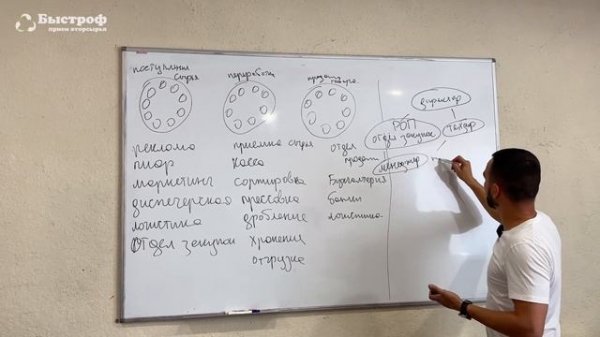 Быстроф
прием вторсырья
поступление
сырья
реклама
пиар
маркетинг
диспетчерская
логистика
отдел закупки
переработка
приемка сырья
касса
сортировка
прессовка
дробление
хранения
отгрузка
продажа
отдел
продаж
бухгалтерия
логистика
директор
РОП
отдел закупок
менеджер